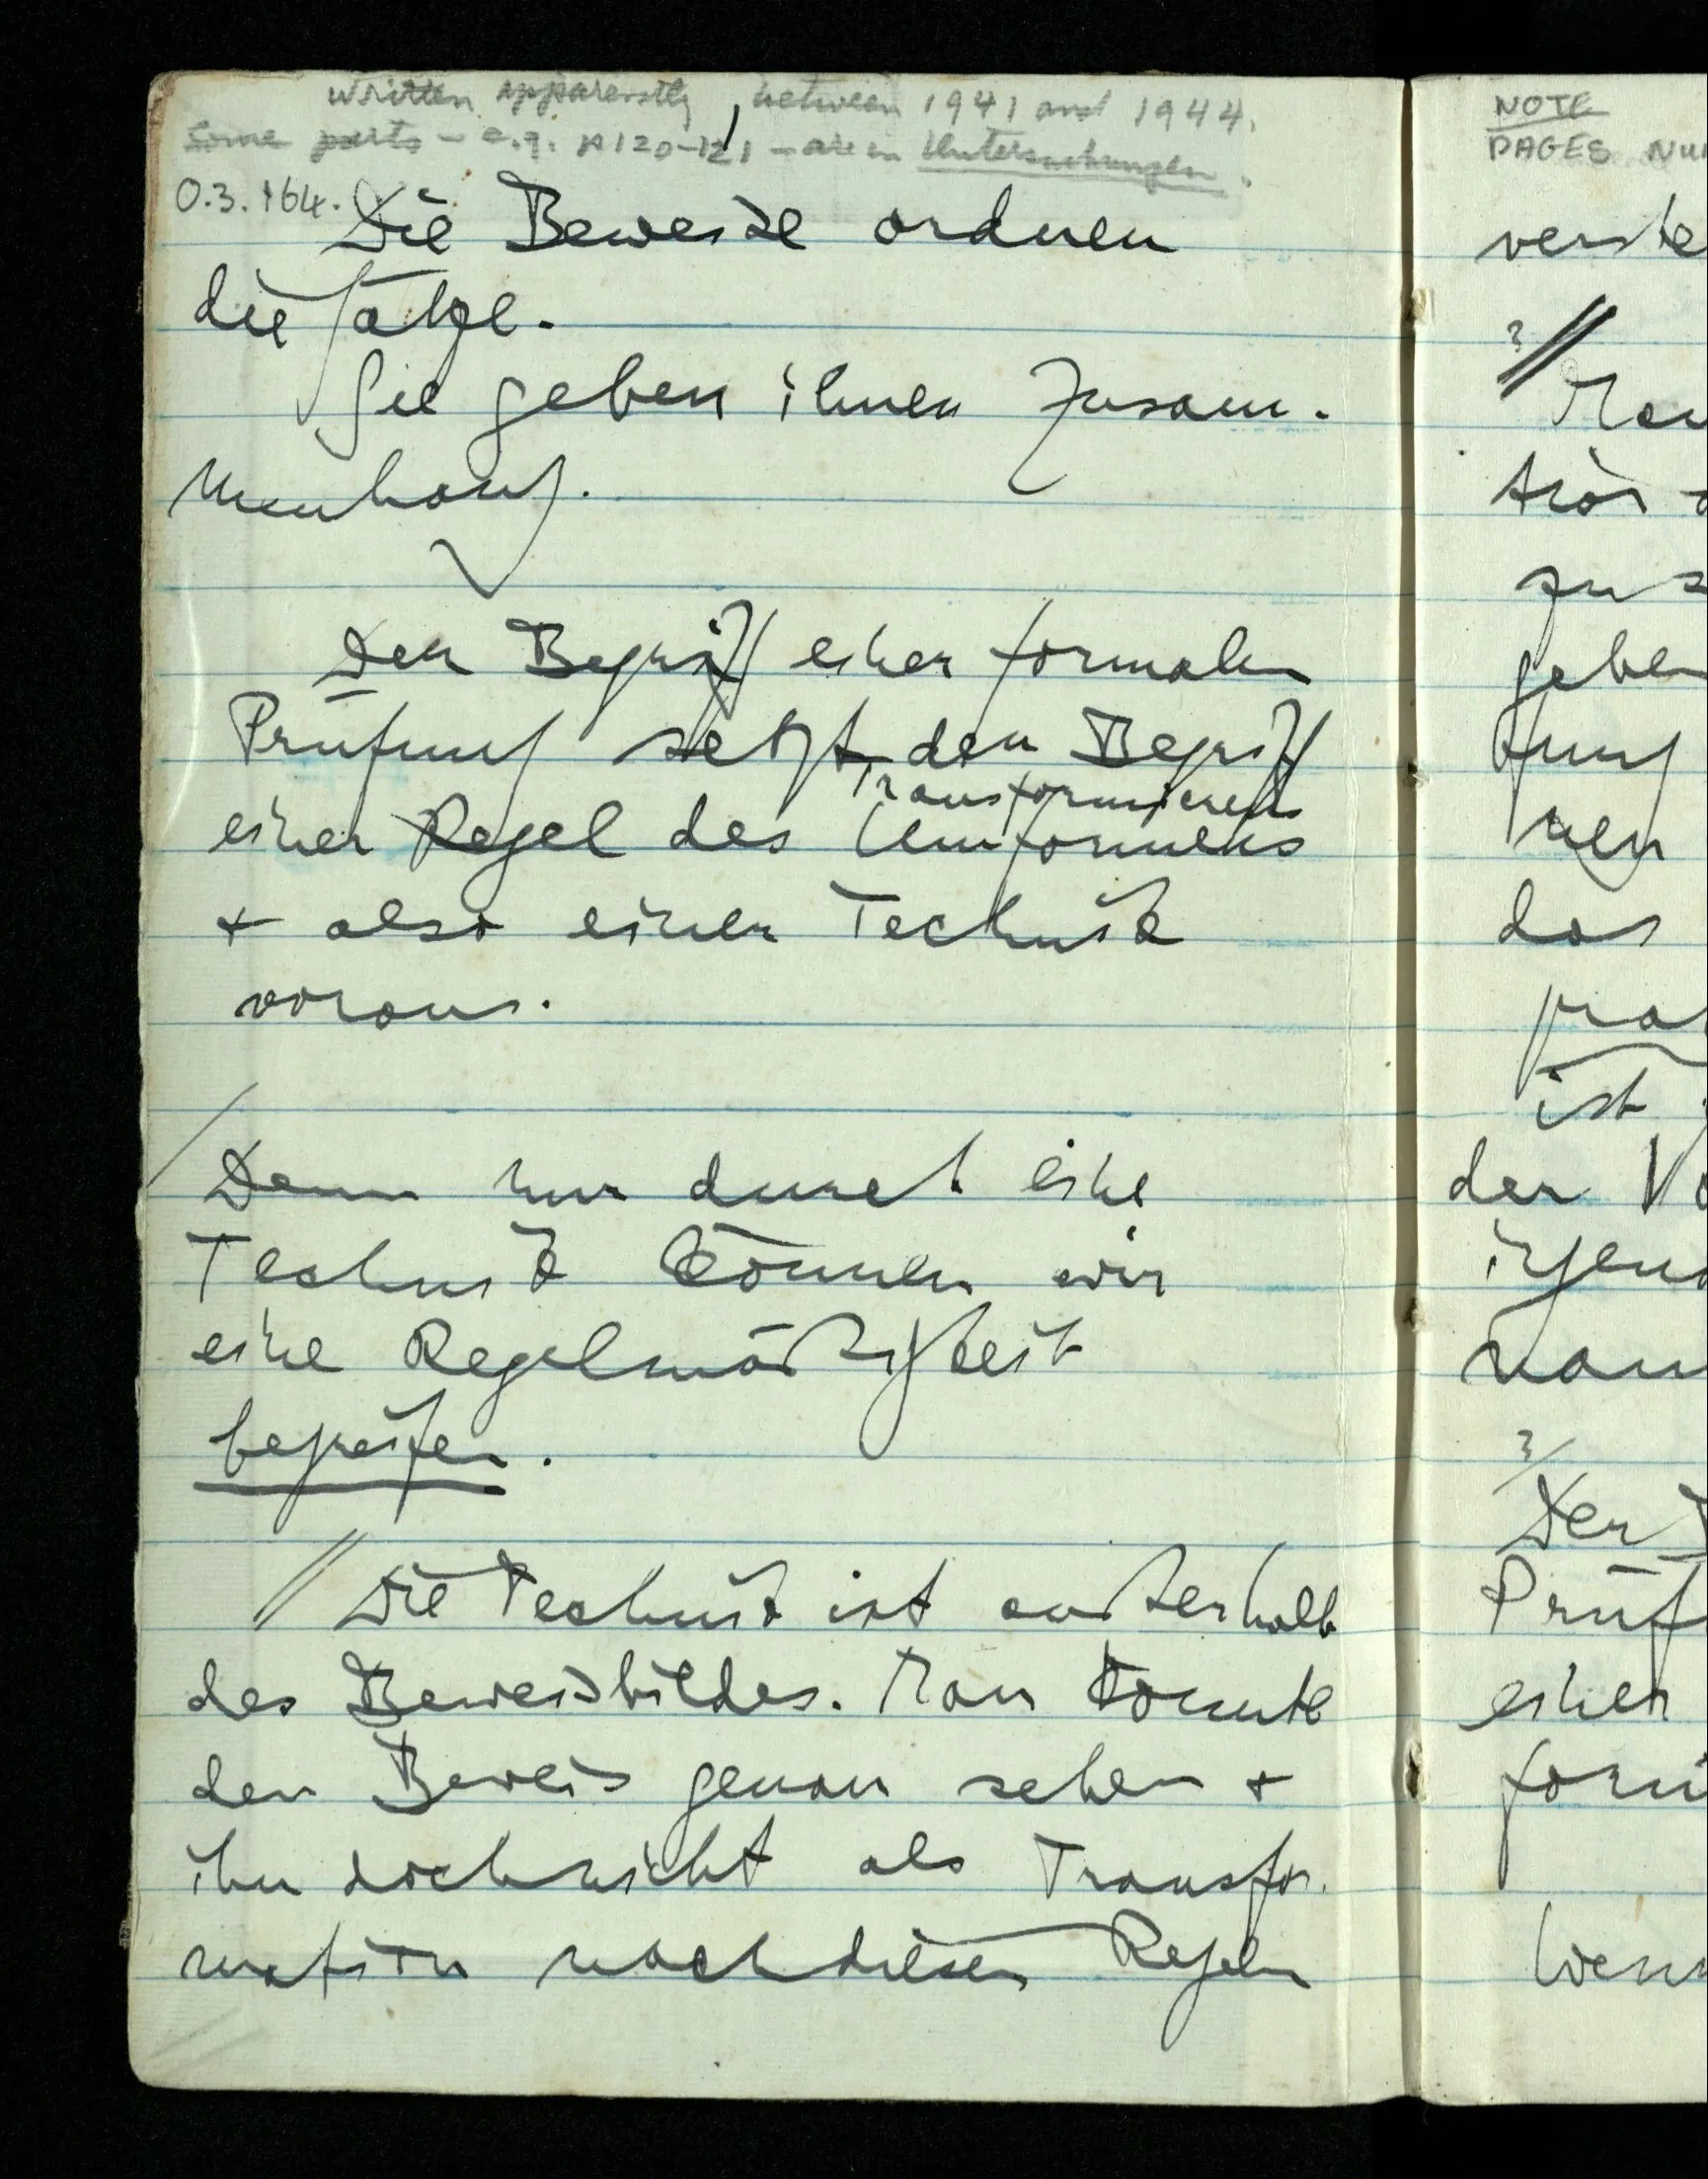 written apparently, between 1941 and 1944.
Some parts – e.g. p 120–121 – are in Untersuchungen.
0.3.164.
Die Beweise ordnen
die Sätze.
Sie geben ihnen Zusam-
menhang.
Der Begriff einer formalen
Prüfung setzt den Begriff
Transformierens
einer Regel des Umformens
+ also einer Technik
voraus.
Denn nur durch eine
Technik können wir
eine Regelmäßigkeit
begreifen.
Die Technik ist außerhalb
des Beweisbildes. Man könnte
den Beweis genau sehen +
ihn doch nicht als Transfor-
mation nach diesen Regeln
NOTE
PAGES NU
verste
?
Man
zu s
geben
das
ist
der Vo
irgend
?
Der
Prüf
einer
form
Wenn